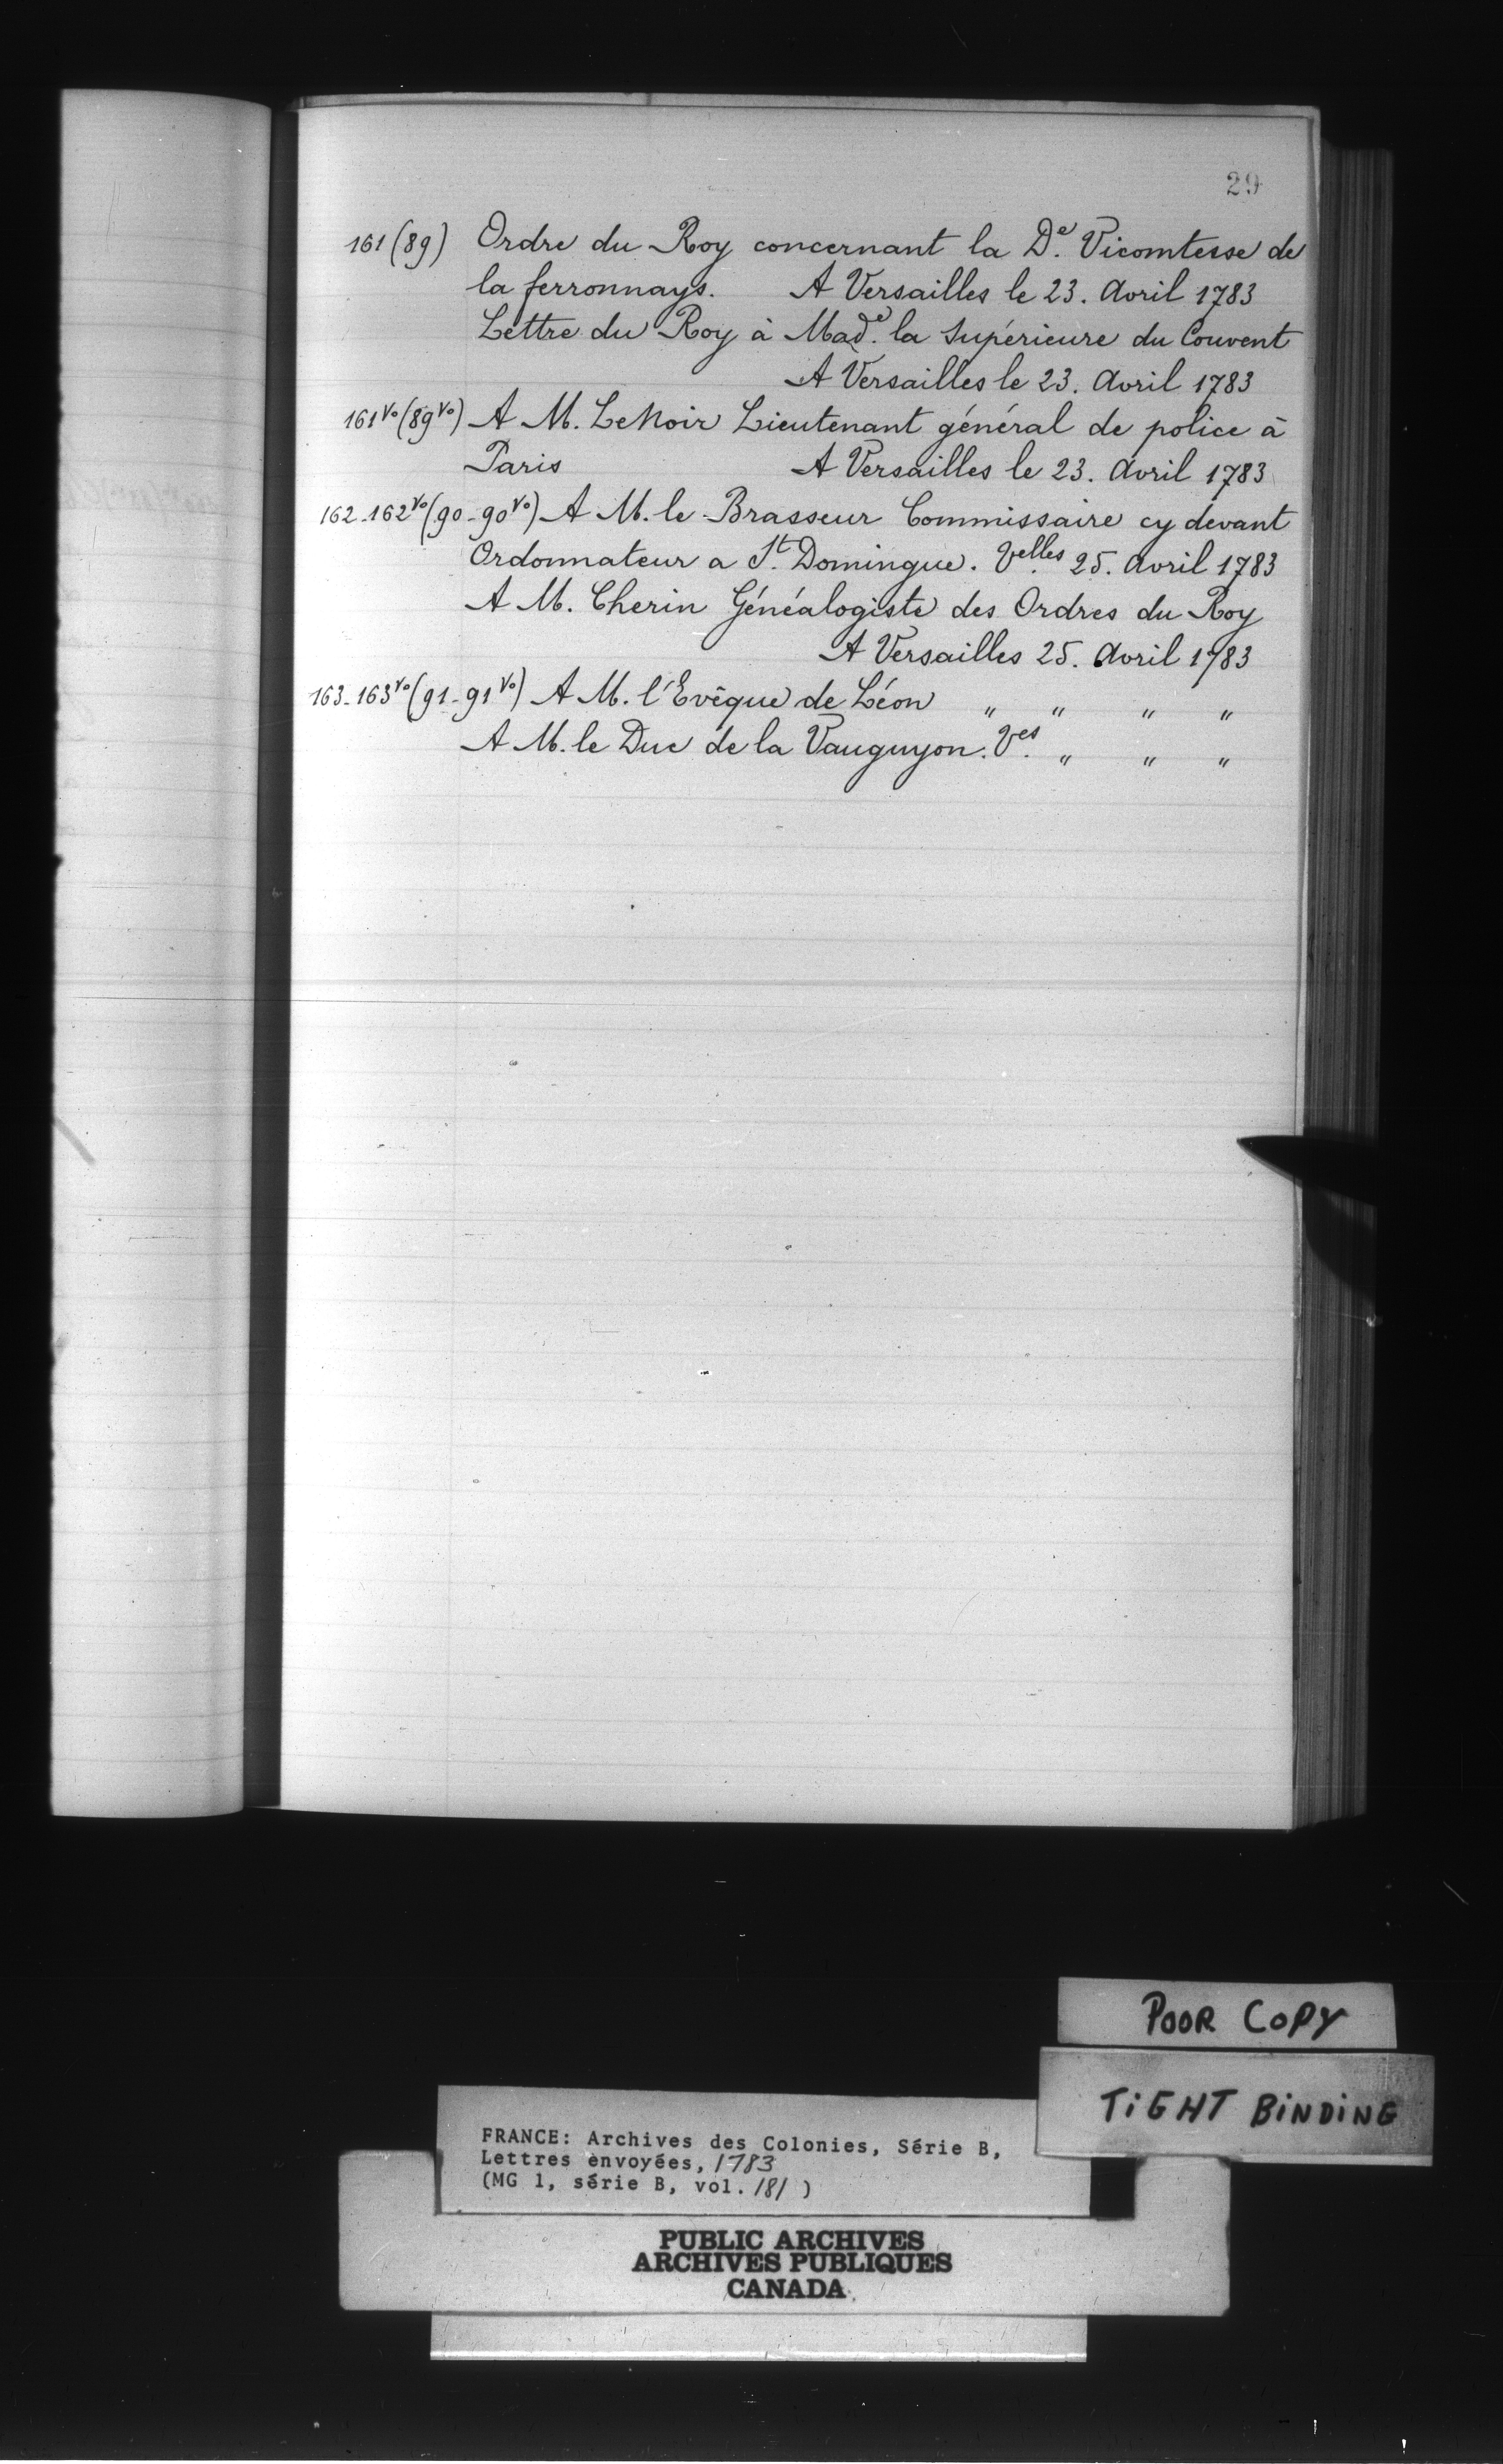 29
161 (89) Ordre du Roy concernant la De. Vicomtesse de
la ferronnays. A Versailles le 23. Avril 1783
Lettre du Roy à Made. la Supérieure du Couvent
A Versailles le 23. Avril 1783
161vo (89vo) A M. LeNoir Lieutenant général de police à
Paris A Versailles le 23. Avril 1783
162-162vo (90-90vo) A M. le Brasseur Commissaire cy devant
Ordonnateur a St. Domingue. Velles 25. Avril 1783
A M. Cherin Généalogiste des Ordres du Roy
A Versailles 25. Avril 1783
163-163vo (91-91vo) A M. l'Evêque de Léon " " " "
A M. le Duc de la Vauguyon. Ves. " " "
POOR COPY
TiGHT BiNDiNG
FRANCE: Archives des Colonies, Série B,
Lettres envoyées, 1783
(MG 1, série B, vol. 181)
PUBLIC ARCHIVES
ARCHIVES PUBLIQUES
CANADA